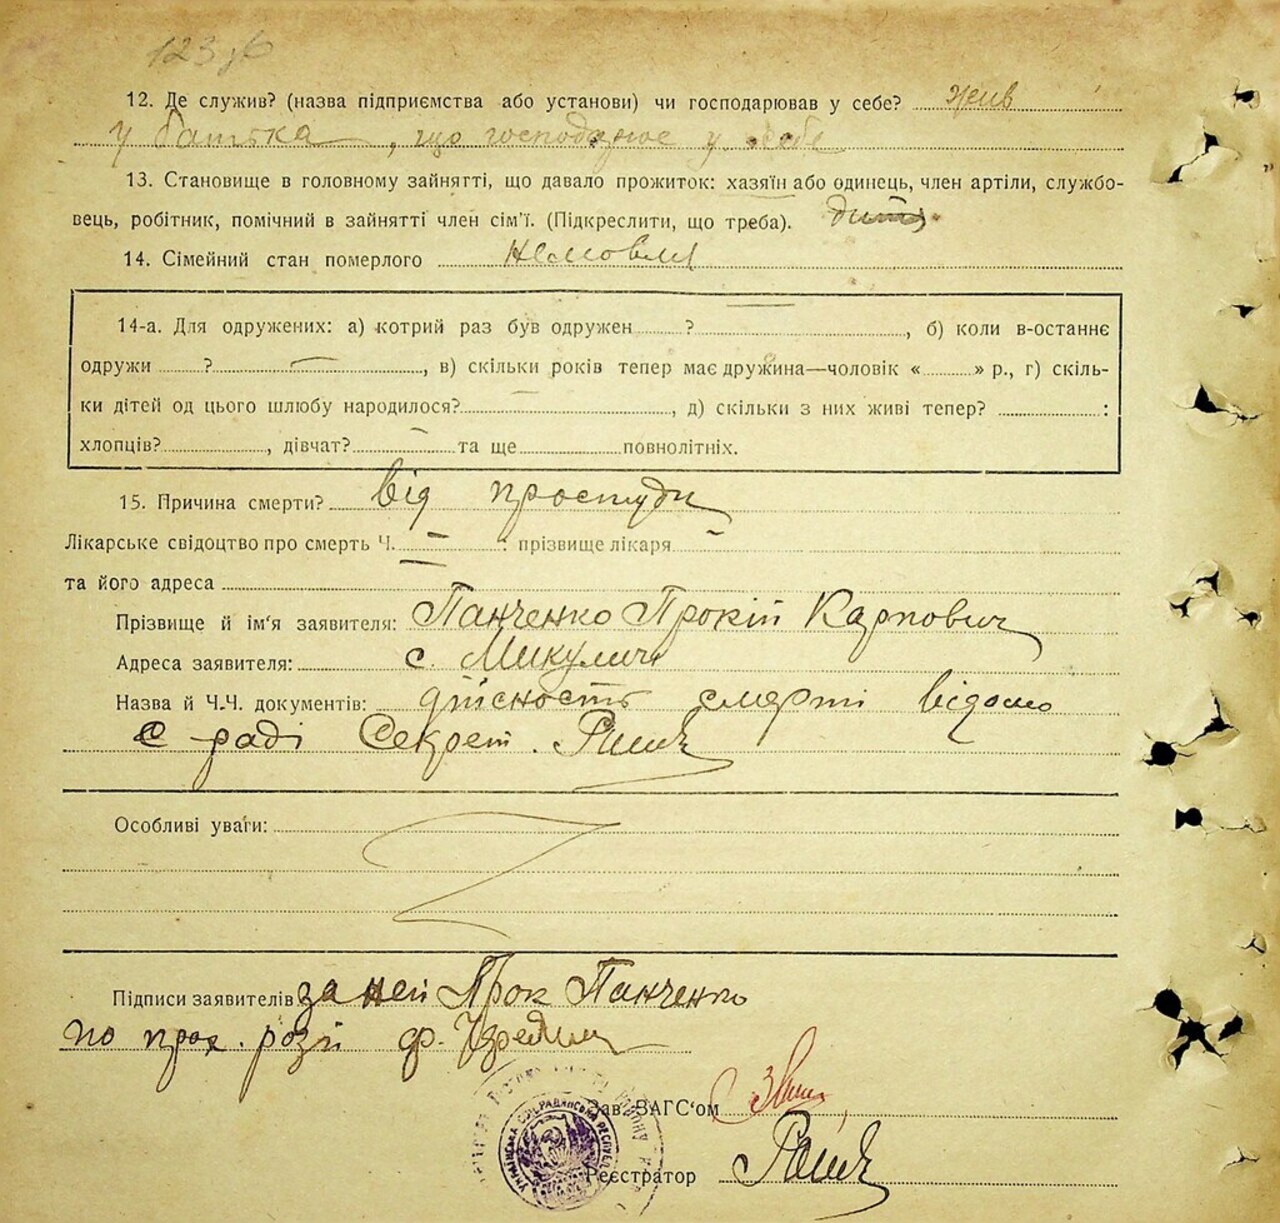 12. Де служив? (назва підприємства або установи) чи господарював у себе? жив
у батька, що господарює у себе
13. Становище в головному зайнятті, що давало прожиток: хазяїн або одинець, член артіли, службо-
вець, робітник, помічний в зайнятті член сім'ї. (Підкреслити, що треба).
14. Сімейний стан померлого немовля
14-а. Для одружених: а) котрий раз був одружен ? , б) коли в-останнє
одружи ? , в) скільки років тепер має дружина—чоловік « » р., г) скіль-
ки дітей од цього шлюбу народилося? , д) скільки з них живі тепер? :
хлопців? , дівчат? та ще повнолітніх.
15. Причина смерти? від простуди
Лікарське свідоцтво про смерть Ч. — : прізвище лікаря —
та його адреса
Прізвище й ім'я заявителя: Панченко Прокій Карпович
Адреса заявителя: с. Микуличі
Назва й Ч.Ч. документів: дійсность смерті відомо
с раді Секрет.
Особливі уваги:
Підписи заявителів за ней Прок Панченко
по
Зав. ЗАГС'ом
УКРАЇНСЬКА
Реєстратор